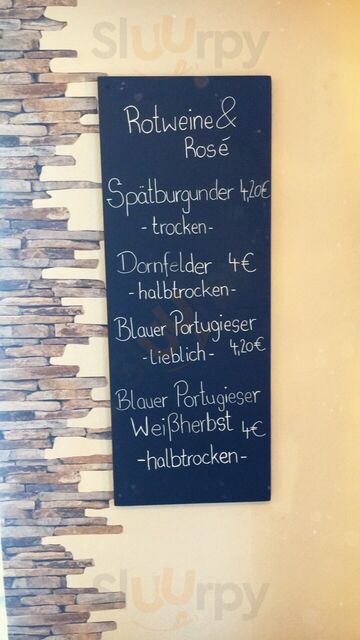 Sluurpy
Rotweine &
Rosé
Spätburgunder 4,20€
- trocken -
Dornfelder 4€
- halbtrocken -
Blauer Portugieser
- lieblich - 4,20€
Blauer Portugieser
Weißherbst 4€
- halbtrocken -
Sluurpy